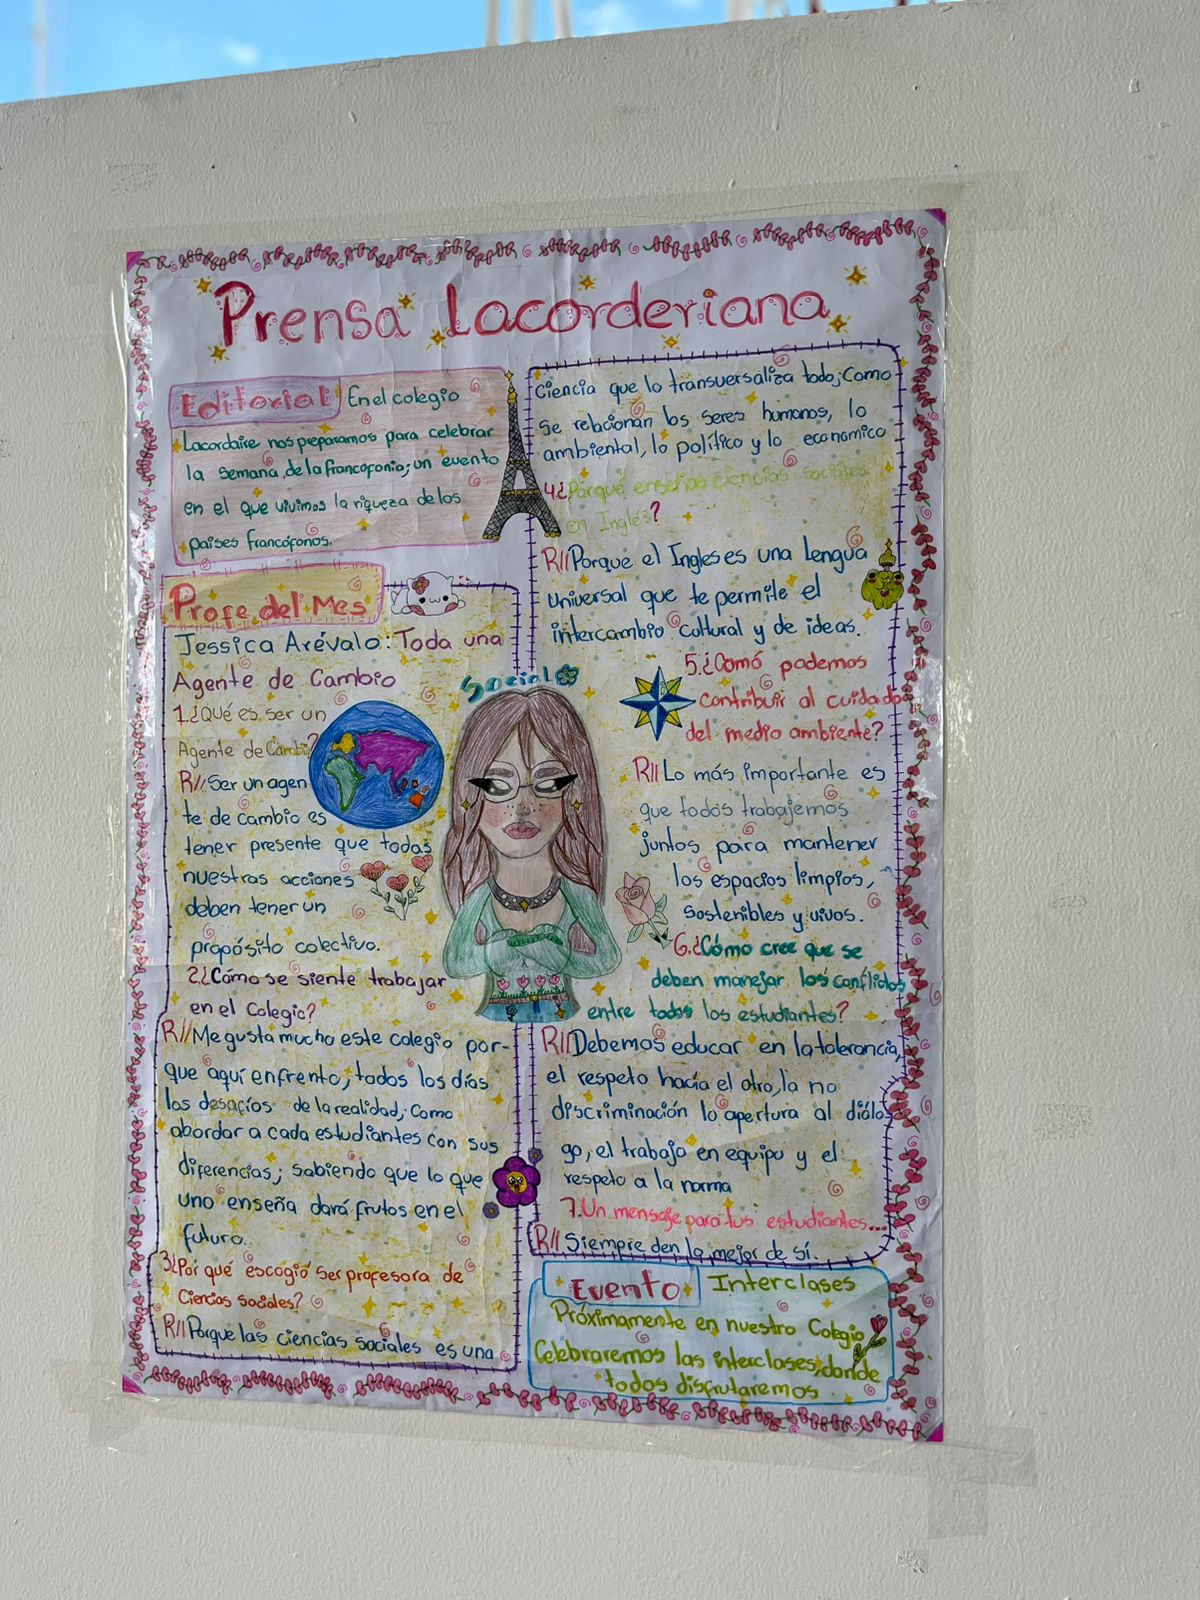 Prensa Lacorderiana
Editorial En el colegio
Lacordaire nos preparamos para celebrar
la semana de la francofonia; un evento
en el que vivimos la riqueza de los
países francófonos.
Profe del Mes
Jessica Arévalo: Toda una
Agente de Cambio
1.¿Qué es ser un
Agente de Cambio?
R// Ser un agen
te de cambio es
tener presente que todas
nuestras acciones
deben tener un
propósito colectivo.
2¿Cómo se siente trabajar
en el Colegio?
R// Me gusta mucho este colegio por-
que aquí enfrento, todos los días
los desafíos de la realidad, como
abordar a cada estudiantes con sus
diferencias; sabiendo que lo que
uno enseña dará frutos en el
futuro.
3¿Por qué escogió ser profesora de
Ciencias sociales?
R// Porque las ciencias sociales es una
Sociales
Ciencia que lo transversaliza todo; Como
se relacionan los seres humanos, lo
ambiental, lo político y lo economico
4¿Porqué enseñas ciencias sociales
en Inglés?
R// Porque el Ingles es una Lengua
universal que te permite el
intercambio cultural y de ideas.
5.¿Comó podemos
contribuir al cuidado
del medio ambiente?
R// Lo más importante es
que todos trabajemos
juntos para mantener
los espacios limpios,
sostenibles y vivos.
6.¿Cómo cree que se
deben manejar los conflictos
entre todos los estudiantes?
R// Debemos educar en la tolerancia,
el respeto hacía el otro, la no
discriminación la apertura al diálo
go, el trabajo en equipo y el
respeto a la norma
7.Un mensaje para tus estudiantes...
R// Siempre den lo mejor de sí.
Evento Interclases
Próximamente en nuestro Colegio
Celebraremos las interclases, donde
todos disfrutaremos